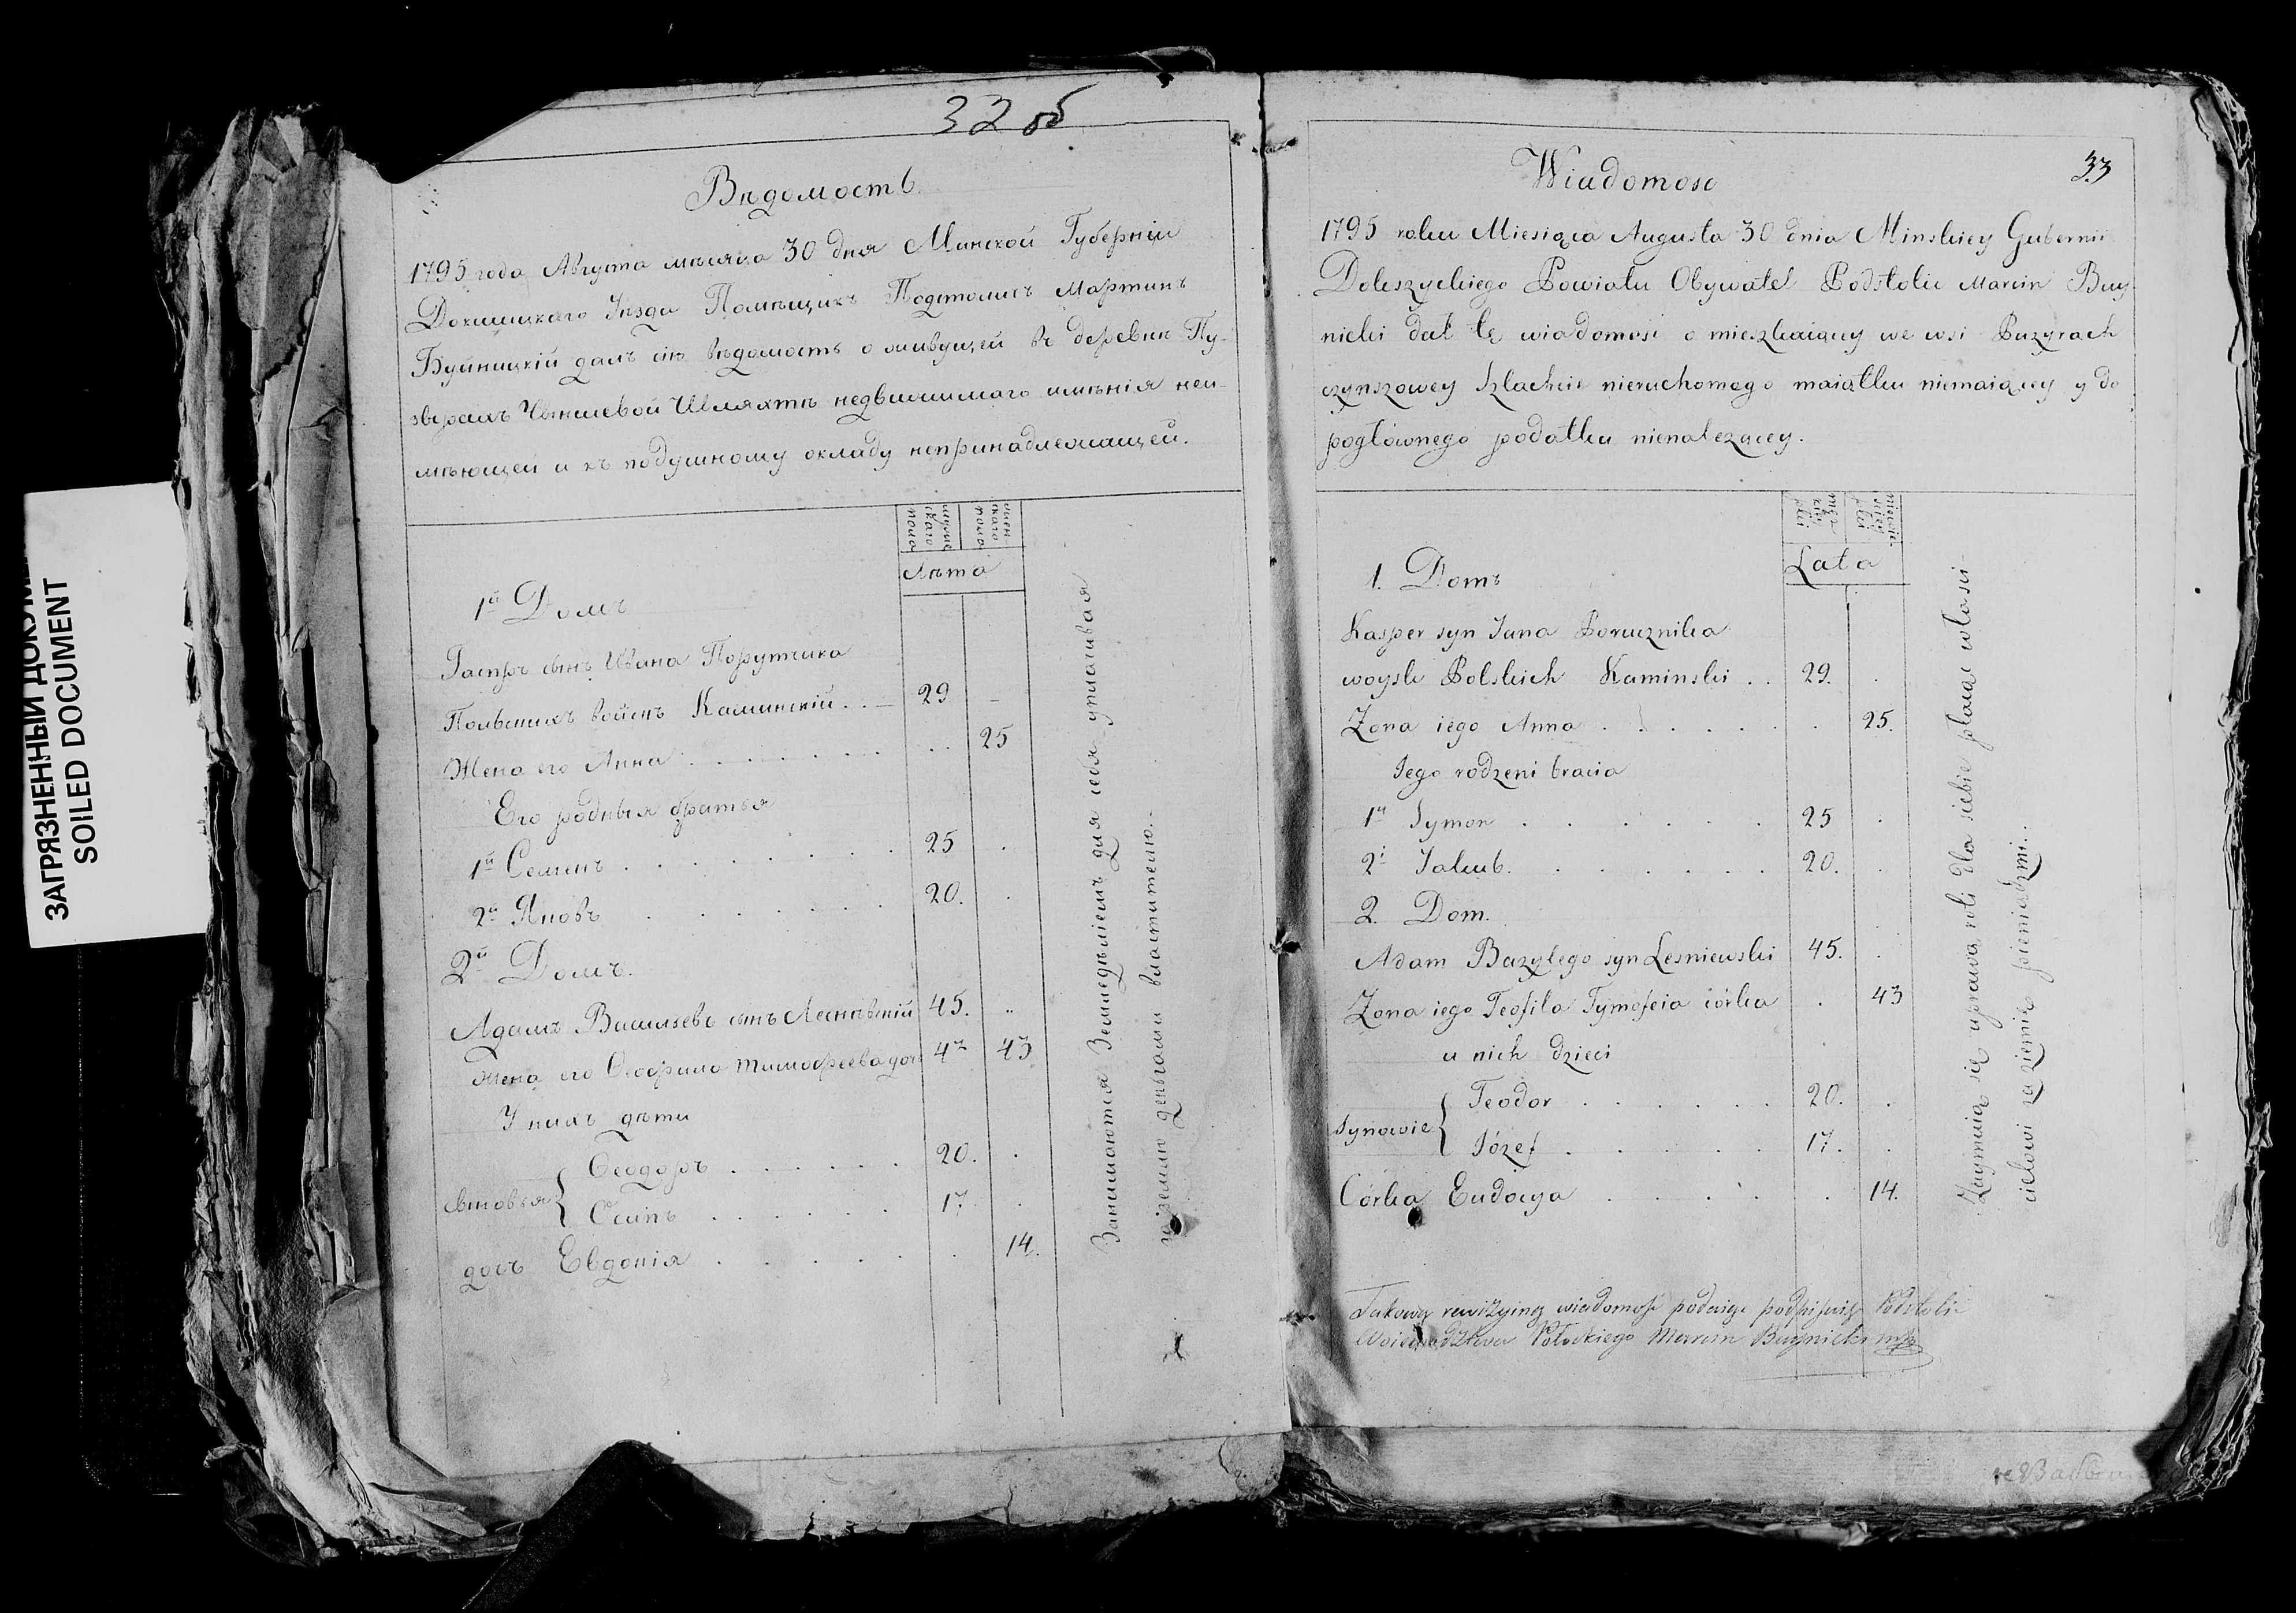 ЗАГРЯЗНЕННЫЙ
SOILED DOCUMENT
32 об
Вѣдомость
1795 года Августа мѣсяца 30 дня Минской Губерніи
Докшицкаго Уѣзда Помѣщикъ Подстолисъ Мартинъ
Буйницкій далъ сію вѣдомость о живущей въ деревнѣ Пу-
зырахъ Чыншевой Шляхтѣ недвижимаго имѣнія неи-
мѣющей и къ подушному окладу непринадлежащей.
мужескаго пола
женскаго пола
Лѣта
1й Домъ
Гаспръ сынъ Ивана Порутчика
Польскихъ войскъ Каминскій . . 29
Жена его Анна . . . . . . . 25
Его родныя братья
1й Семенъ . . . . . . . . 25
2й Яковъ . . . . . . . 20.
2й Домъ.
Адамъ Васильевъ сынъ Леснѣвскій 45.
Жена его Ѳеофила Тимофеева доч 43
У нихъ дѣти
Ѳеодоръ . . . . . . 20.
сыновья
Осипъ . . . . . . 17
дочь Евдокія . . . . 14.
Занимаются Земледѣліемъ для себя уплачивая
за землю деньгами властителю.
33
Wiadomosc
1795 roku Miesiąca Augusta 30 dnia Minskiey Gubernii
Dokszyckiego Powiatu Obywatel Podstolic Marcin Buy-
nicki dał tę wiadomosc o mieszkaiącey we wsi Puzyrach
czynszowey szlachcie nieruchomego maiątku niemaiącey y do
pogłównego podatku nienalezącey.
Lata
1. Domъ
Kasper syn Jana Porucznika
woysk Polskich Kaminski . . 29.
Zona iego Anna . . . . . . . 25.
Jego rodzeni bracia
1y Symon . . . . . . 25
2i Jakub. . . . . . . 20.
2. Dom.
Adam Bazylego syn Lesniewski 45.
Zona iego Teofila Tymofeia córka . 43
u nich dzieci
Teodor . . . . . . 20.
Synowie
Józef . . . . . . 17.
Córka Eudocya . . . . . 14.
Zaymuią się uprawą roli dla siebie płacąc własci-
cielowi za ziemię pieniędzmi.
Takową rewizyiną wiadomość podaiąc podpisuię Podstolic
Woiewodztwa Połockiego Marcin Buynicki mp